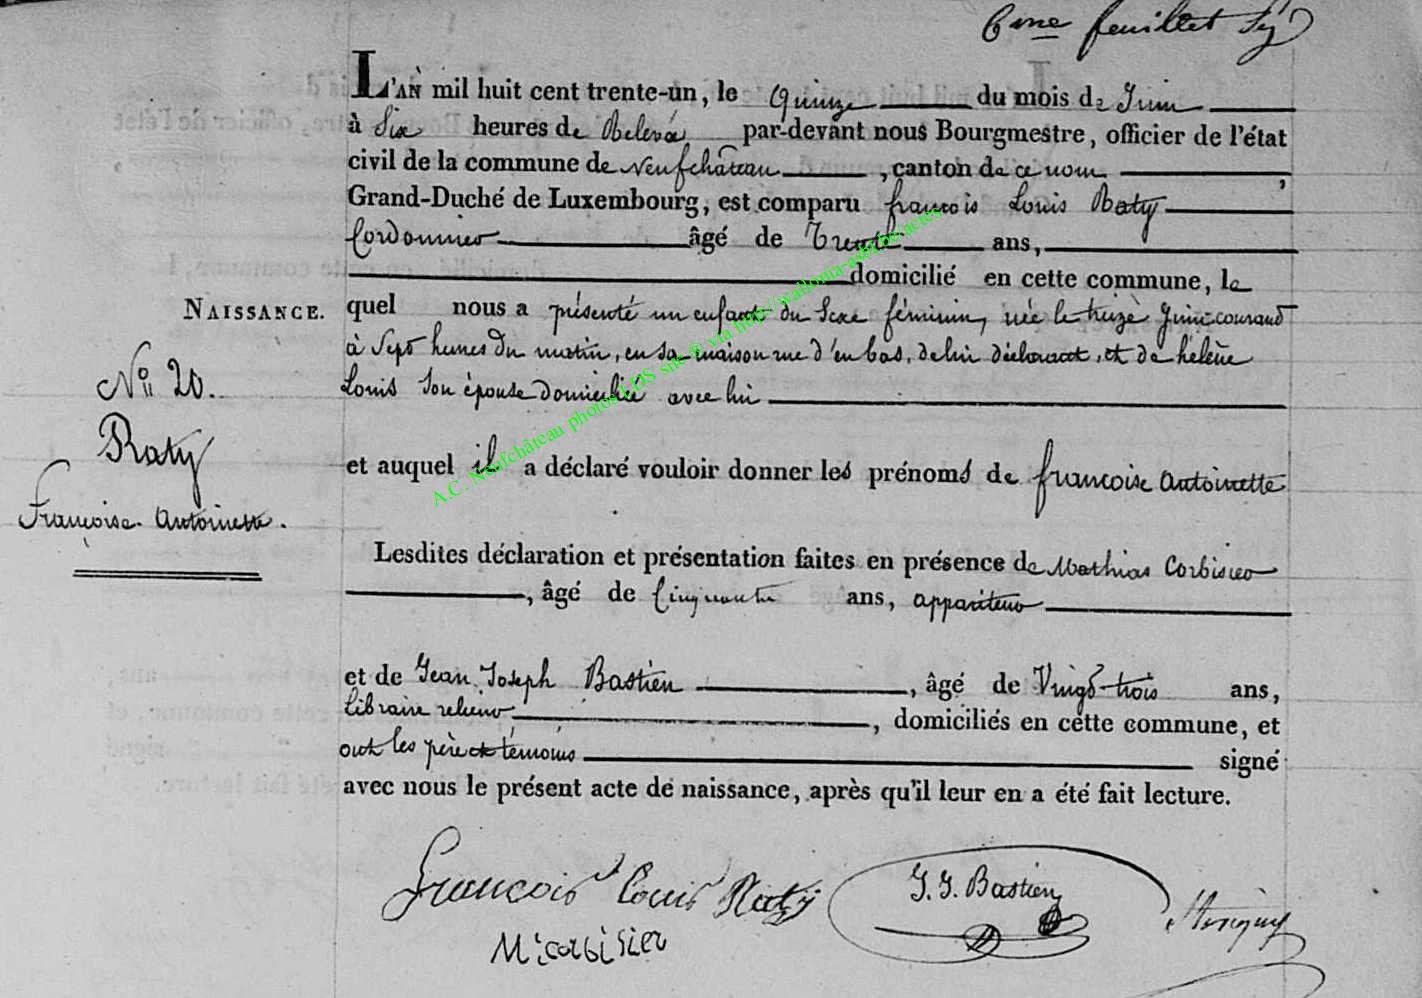 6me feuillet
L'AN mil huit cent trente-un, le quinze du mois de Juin
à Six heures de Relevée par-devant nous Bourgmestre, officier de l'état
civil de la commune de Neufchâteau, canton de ce nom,
Grand-Duché de Luxembourg, est comparu francois Louis Raty
Cordonnier âgé de Trente ans,
domicilié en cette commune, le
NAISSANCE.
quel nous a présenté un enfant du Sexe féminin, née le treize Juin courant
à Sept heures du matin, en sa maison rue d'en bas, de lui déclarant, et de hélène
Louis Son épouse domiciliée avec lui
No 20.
Raty
Françoise Antoinette.
et auquel il a déclaré vouloir donner les prénoms de francoise Antoinette
Lesdites déclaration et présentation faites en présence de Mathias Corbisier
, âgé de Cinquante ans, appariteur
et de Jean Joseph Bastien, âgé de Vingt-trois ans,
libraire relieur, domiciliés en cette commune, et
ont les père et témoins signé
avec nous le présent acte de naissance, après qu'il leur en a été fait lecture.
francois Louis Raty
J. J. Bastien
M: corbisier
A.C. Neufchâteau photos LDS site ® via http://wallonia-asbl.be:actes